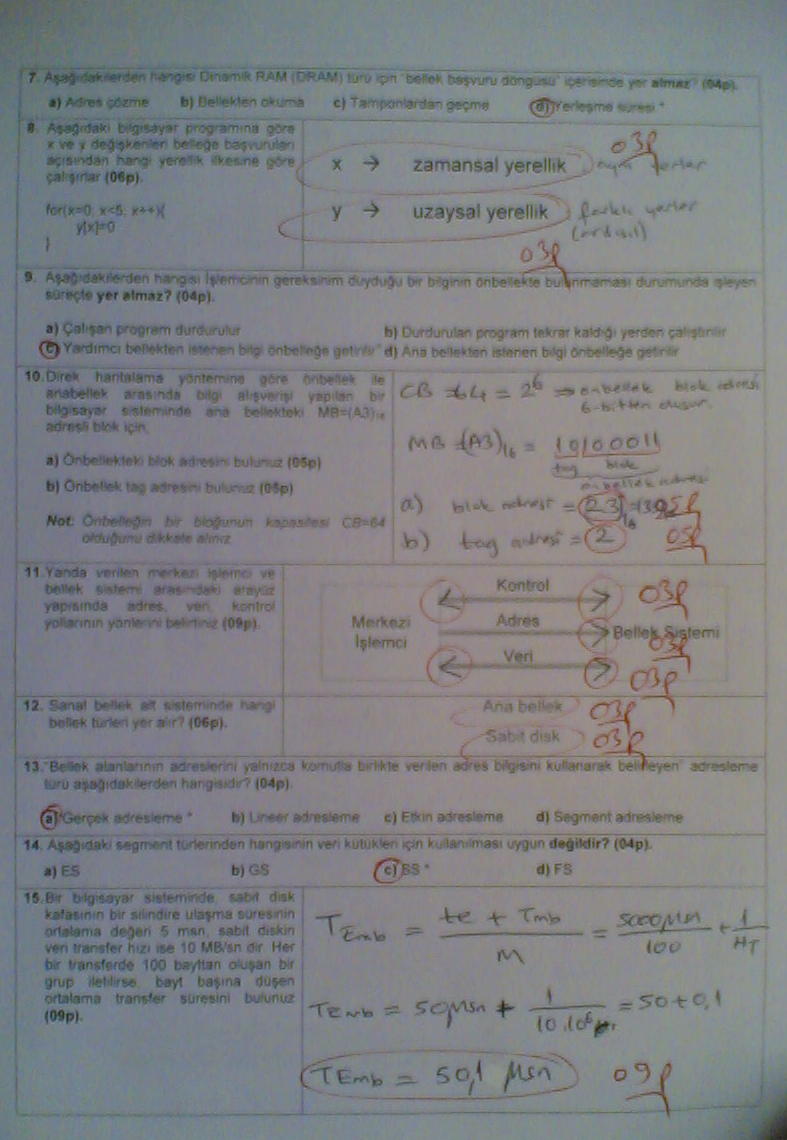 7. Aşağıdakilerden hangisi Dinamik RAM (DRAM) türü için "bellek başvuru döngüsü" içerisinde yer almaz? (04p).
a) Adres çözme b) Bellekten okuma c) Tamponlardan geçme d) Yerleşme süresi *
8. Aşağıdaki bilgisayar programına göre
x ve y değişkenleri belleğe başvuruları
açısından hangi yerellik ilkesine göre
çalışırlar (06p).
for(x=0; x<5; x++){
y[x]=0
}
x → zamansal yerellik aynı yerler
03p
y → uzaysal yerellik farklı yerler
(ardışıl)
03p
9. Aşağıdakilerden hangisi İşlemcinin gereksinim duyduğu bir bilginin önbellekte bulunmaması durumunda işleyen
süreçte yer almaz? (04p).
a) Çalışan program durdurulur b) Durdurulan program tekrar kaldığı yerden çalıştırılır
c) Yardımcı bellekten istenen bilgi önbelleğe getirilir * d) Ana bellekten istenen bilgi önbelleğe getirilir
10. Direk haritalama yöntemine göre önbellek ile
anabellek arasında bilgi alışverişi yapılan bir
bilgisayar sisteminde ana bellekteki MB=(A3)16
adresli blok için,
a) Önbellekteki blok adresini bulunuz (05p)
b) Önbellek tag adresini bulunuz (05p)
Not: Önbelleğin bir bloğunun kapasitesi CB=64
olduğunu dikkate alınız
CB = 64 = 2^6 ⇒ önbellek blok adresi
6-bitten oluşur.
MB = (A3)16 = 10100011
tag blok
önbellek adresi
a) blok adresi = (23)16 05p
b) tag adresi = 2 05p
11. Yanda verilen merkezi işlemci ve
bellek sistemi arasındaki arayüz
yapısında adres, veri, kontrol
yollarının yönlerini belirtiniz (09p).
Merkezi
İşlemci
Kontrol 03p
Adres 03p
Veri 03p
Bellek Sistemi
12. Sanal bellek alt sisteminde hangi
bellek türleri yer alır? (06p).
Ana bellek 03p
Sabit disk 03p
13. "Bellek alanlarının adreslerini yalnızca komutla birlikte verilen adres bilgisini kullanarak belirleyen" adresleme
türü aşağıdakilerden hangisidir? (04p).
a) Gerçek adresleme * b) Lineer adresleme c) Etkin adresleme d) Segment adresleme
14. Aşağıdaki segment türlerinden hangisinin veri kütükleri için kullanılması uygun değildir? (04p).
a) ES b) GS c) SS * d) FS
15. Bir bilgisayar sisteminde, sabit disk
kafasının bir silindire ulaşma süresinin
ortalama değeri 5 msn, sabit diskin
veri transfer hızı ise 10 MB/sn dir. Her
bir transferde 100 bayttan oluşan bir
grup iletilirse, bayt başına düşen
ortalama transfer süresini bulunuz
(09p).
TEmb = te + Tmb / M = 5000 μsn / 100 + 1 / HT
TEmb = 50 μsn + 1 / 10.10^6 = 50 + 0,1
TEmb = 50,1 μsn 09p